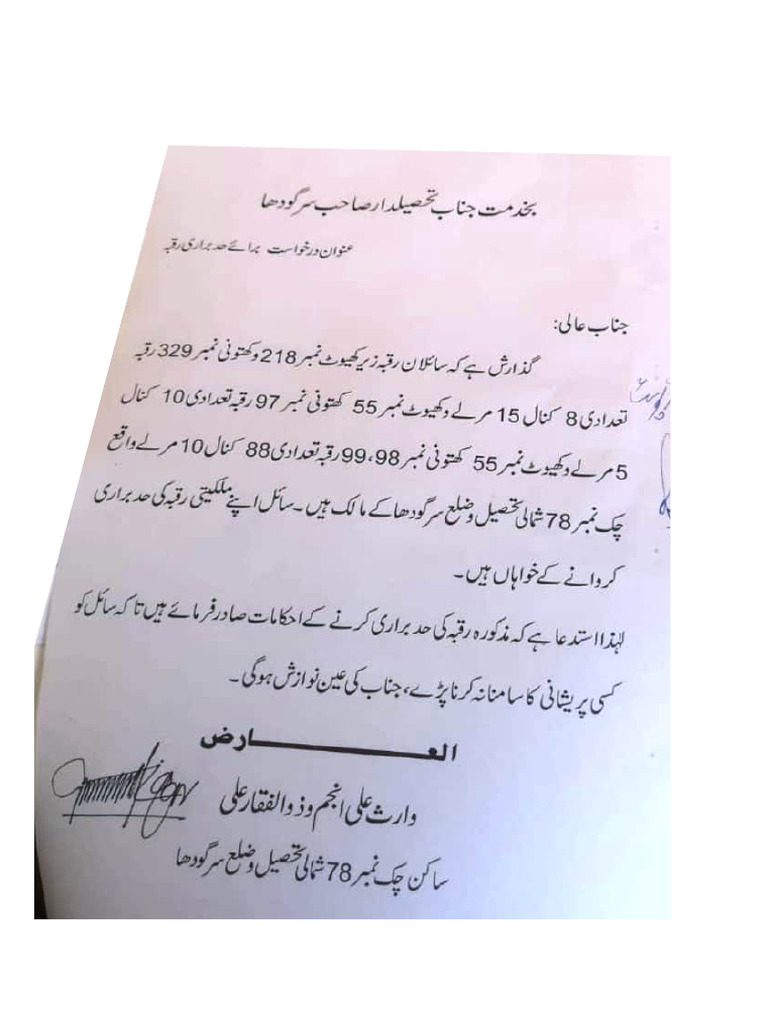 بخدمت جناب تحصیلدار صاحب سرگودھا
عنوان درخواست برائے حد براری رقبہ
جناب عالی:
گذارش ہے کہ سائلان رقبہ زیر کھیوٹ نمبر 218 و کھتونی نمبر 329 رقبہ
تعدادی 8 کنال 15 مرلے و کھیوٹ نمبر 55 کھتونی نمبر 97 رقبہ تعدادی 10 کنال
5 مرلے و کھیوٹ نمبر 55 کھتونی نمبر 98، 99 رقبہ تعدادی 88 کنال 10 مرلے واقع
چک نمبر 78 شمالی تحصیل و ضلع سرگودھا کے مالک ہیں۔ سائل اپنے ملکیتی رقبہ کی حد براری
کروانے کے خواہاں ہیں۔
لہذا استدعا ہے کہ مذکورہ رقبہ کی حد براری کرنے کے احکامات صادر فرمائے ہیں تا کہ سائل کو
کسی پریشانی کا سامنا نہ کرنا پڑے، جناب کی عین نوازش ہوگی۔
العــــــــارض
وارث علی انجم و ذوالفقار علی
ساکن چک نمبر 78 شمالی تحصیل و ضلع سرگودھا